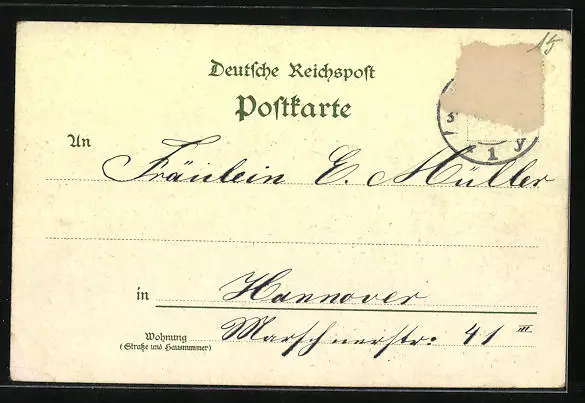 15
Deutsche Reichspost
Postkarte
An Fräulein E. Müller
in Hannover
Wohnung Marschnerstr. 41 III
(Straße und Hausnummer)
1